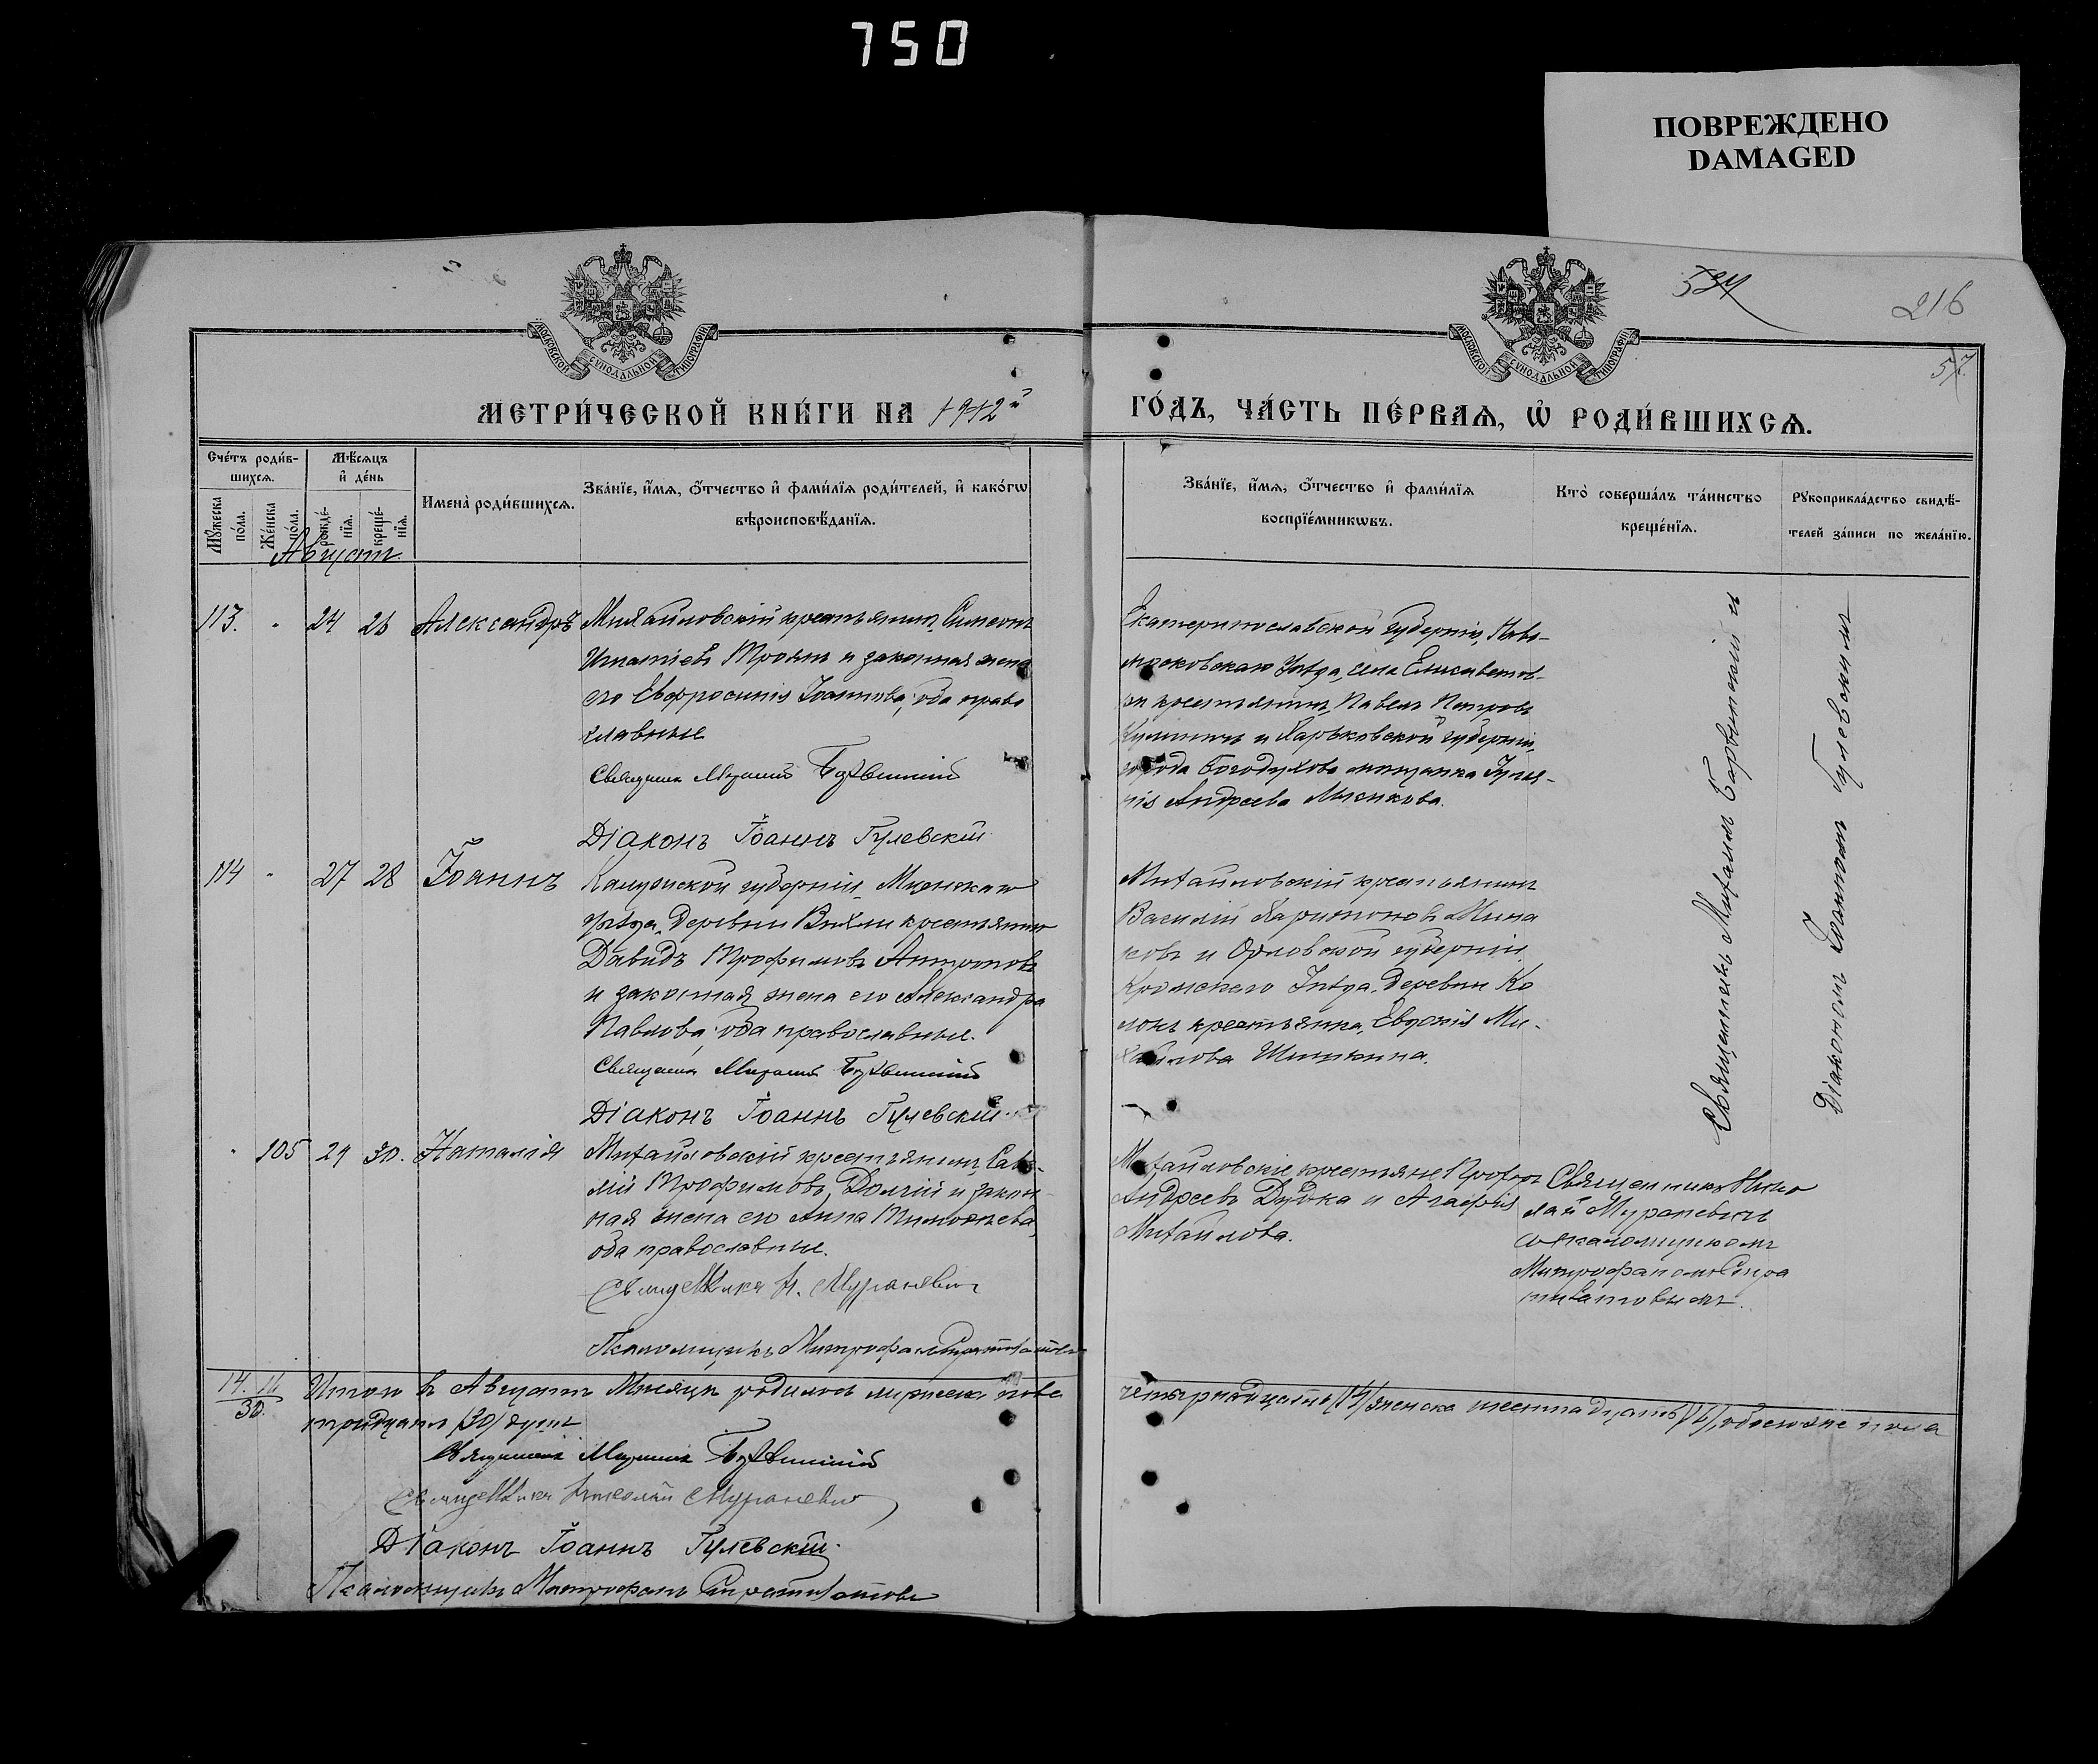 750
ПОВРЕЖДЕНО
DAMAGED
МОСКОВСКОЙ СУНОДАЛЬНОЙ ТИПОГРАФІИ
МОСКОВСКОЙ СУНОДАЛЬНОЙ ТИПОГРАФІИ
216
57
МЕТРИ́ЧЕСКОЙ КНИ́ГИ НА 1912й
ГО́ДЪ, ЧА́СТЬ ПЕ́РВАѦ, Ѡ҆ РОДИ́ВШИХСѦ.
Сче́тъ роди́в-
шихсѧ.
Мѣ́сѧцъ
и҆ де́нь
Мꙋ́жеска
по́ла.
Же́нска
по́ла.
рожде́-
нїѧ.
креще́-
нїѧ.
Имена̀ роди́вшихсѧ.
Зва́нїе, и҆́мѧ, ѻ҆́тчество и҆ фами́лїѧ роди́телей, и҆ како́гѡ
вѣроисповѣ́данїѧ.
Зва́нїе, и҆́мѧ, ѻ҆́тчество и҆ фами́лїѧ
воспрїе́мникѡвъ.
Кто̀ соверша́лъ та́инство
креще́нїѧ.
Рꙋкоприкла́дство свидѣ́-
телей за́писи по жела́нїю.
Августъ.
113. " 24 26 Александръ
Михайловскій крестьянинъ, Симеонъ
Игнатіевъ Троянъ и законная жена
его Евфросинія Іоаннова, оба право
славные
Священникъ Михаилъ
Діаконъ Іоаннъ Гулевскій
Екатеринославской губерніи, Ново-
московскаго уѣзда, села Елисаветов-
ки крестьянинъ, Павелъ Петровъ
и Харьковской губерніи,
города Богодухова мѣщанка
Андреева
114 " 27 28 Іоаннъ
Калужской губерніи,
уѣзда, деревни крестьянинъ
Давидъ Трофимовъ Антоновъ
и законная жена его Александра
Павлова, оба православные.
Священникъ Михаилъ
Діаконъ Іоаннъ Гулевскій
Михайловскій крестьянинъ
Василій Харитоновъ Мина
ковъ и Орловской губерніи
Кромскаго уѣзда, деревни Ко
крестьянка, Евдокія Ми-
хайлова Шишкина.
Священникъ Михаилъ и
Діакономъ Іоанномъ Гулевскимъ
" 105 29 30. Наталія
Михайловскій крестьянинъ,
Трофимовъ Долгій и закон
ная жена его Анна Тимофеева,
оба православные.
Священникъ Н. Мураневичъ
Псаломщикъ Митрофанъ Стратилатовъ
Михайловскіе крестьяне
Андреевъ Дудка и Агафія
Михайлова.
Священникъ Нико
лай Мураневичъ
съ псаломщикомъ
Митрофаномъ Стра
тилатовымъ.
14. 16
30.
Итого въ Августѣ мѣсяцѣ родилось мужеска пола
четырнадцать /14/ женска шестнадцать /16/, обоего же пола
тридцать /30/ душъ
Священникъ Михаилъ
Священникъ Николай Мураневичъ
Діаконъ Іоаннъ Гулевскій.
Псаломщикъ Митрофанъ Стратилатовъ